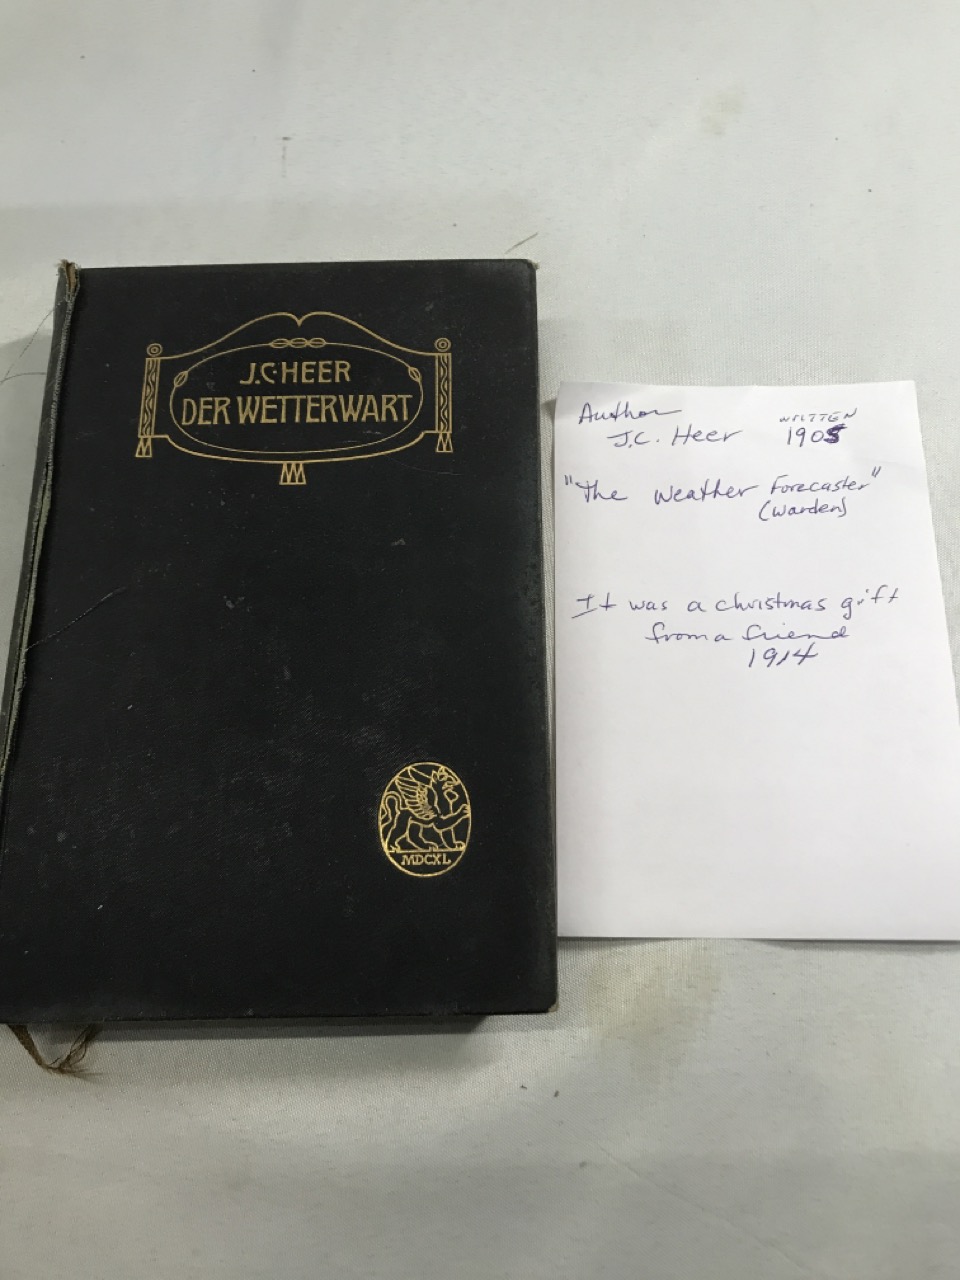 J.C. HEER
DER WETTERWART
MDCXL
Author
WRITTEN
J.C. Heer 1905
"The Weather Forecaster"
(Warden)
It was a christmas gift
from a friend
1914